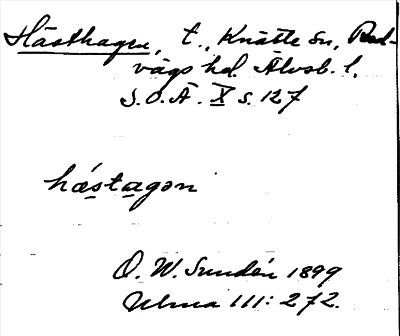 Hästhagen, t., Knätte sn, Red-
vägs hd. Älvsb. l.
S.O.Ä. X s. 127
hǽstagən
O. W. Sundén 1899
Ulma 111: 272.